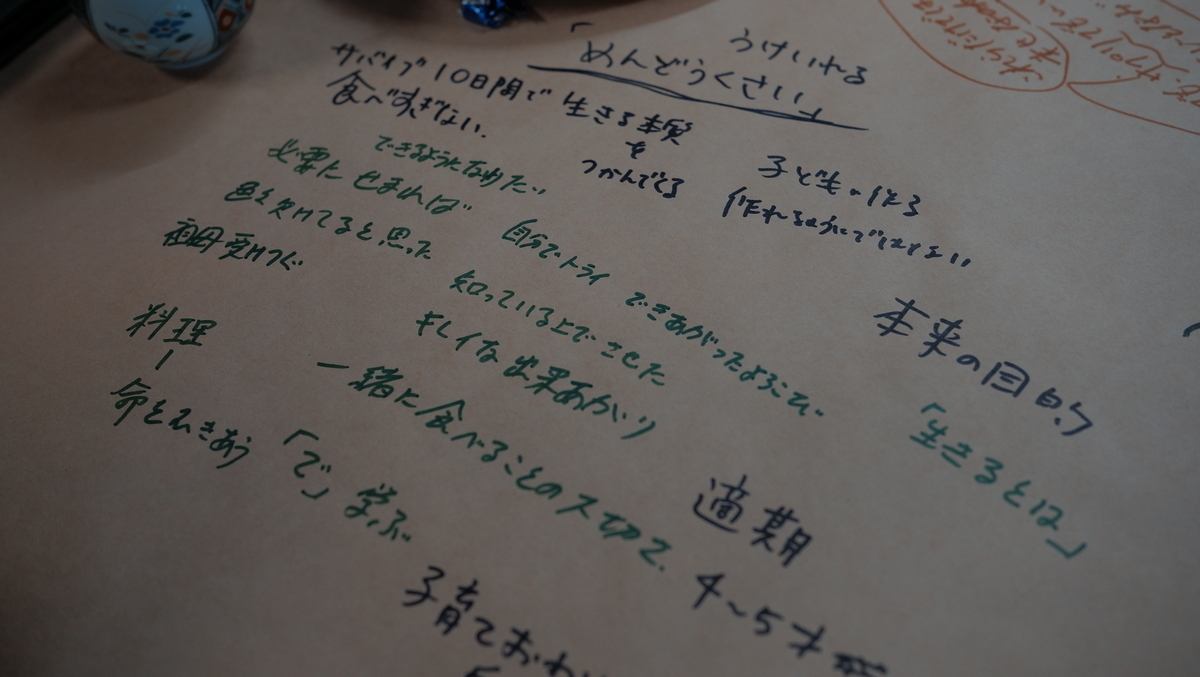 うけいれる
「めんどうくさい」
サバイブ10日間で
食べすぎない.
生きる本質
を
つかんでくる
子ども・作る
作れるようにではない
できるようになりたい
必要にせまれば
色を欠けてると思った
祖母 受けつぐ
自分でトライ できあがったよろこび
知っている上でさせた
キレイな出来あがり
料理
命とむきあう
「で」学ぶ
一緒に食べることの大切さ.
本来の目的
「生きるとは」
適期
4〜5才
子育ておわ